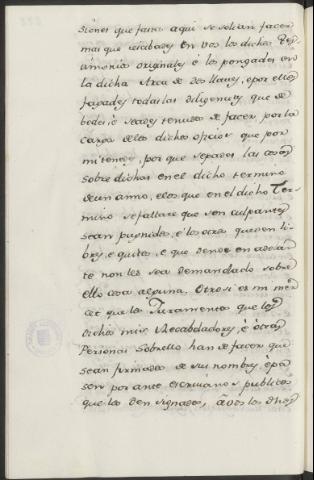 siones que fasta aqui se solian facer
mas que recibades en vos los dichos Tes-
timonios originales é los pongades en
la dicha Arca de dos llaves, epor ellos
fagades todas las diligencias que de-
bedes é seades tenudos de facer por la
carga delos dichos oficios que por
mi tenedes, por que sepades las cosas
sobre dichas en el dicho termino
de un anno, elos que en el dicho Ter-
mino se fallare que son culpantes
sean punidos, é los otros queden li-
bres, é quitos, é que dende en adelan-
te non les sea demandado sobre
ello cosa alguna. Otrosi es mi mer-
cet que los Juramentos que los
dichos mis Recabdadores, é otras
Personas sobrello han de facer que
sean firmados de sus nombres, é pa-
sen por ante escrivanos publicos
que los den signados, á vos los dhos